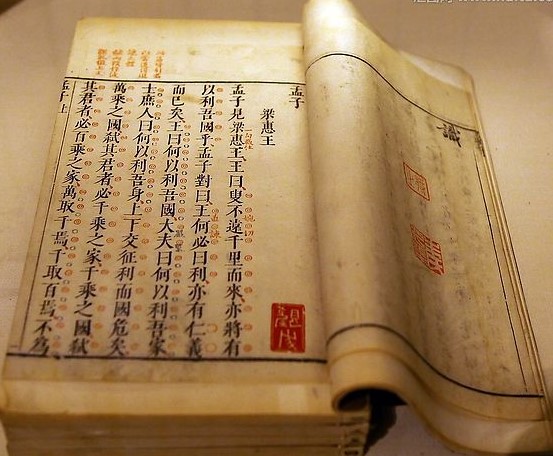 識
孟子
梁惠王
孟子見梁惠王王曰叟不遠千里而來亦將有
以利吾國乎孟子對曰王何必曰利亦有仁義
而已矣王曰何以利吾國大夫曰何以利吾家
士庶人曰何以利吾身上下交征利而國危矣
萬乘之國弒其君者必千乘之家千乘之國弒
其君者必百乘之家萬取千焉千取百焉不為
孟子上